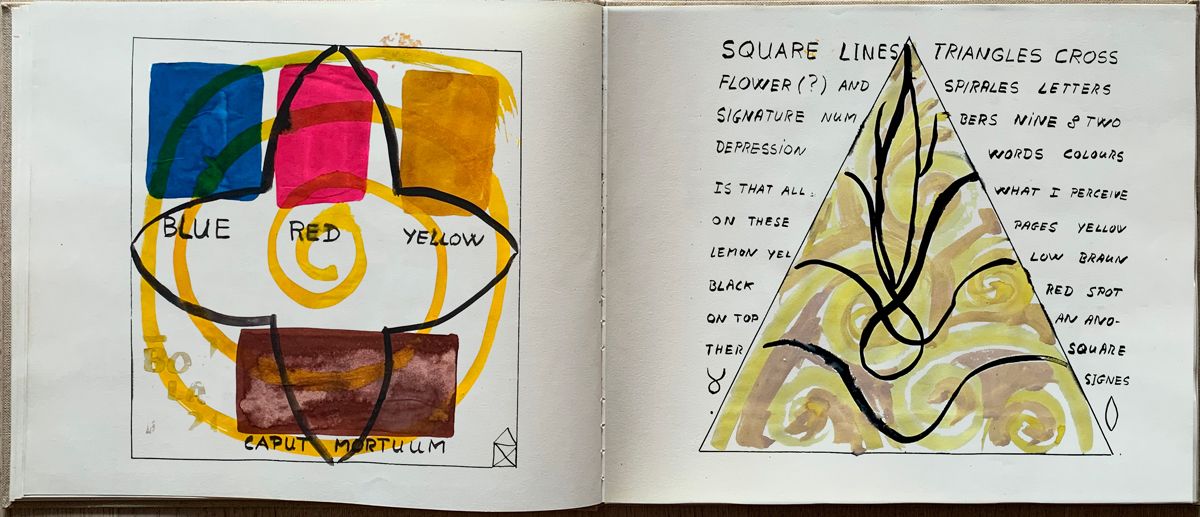 BLUE RED YELLOW
CAPUT MORTUUM
SQUARE LINES TRIANGLES CROSS
FLOWER (?) AND SPIRALES LETTERS
SIGNATURE NUM BERS NINE & TWO
DEPRESSION WORDS COLOURS
IS THAT ALL: WHAT I PERCEIVE
ON THESE PAGES YELLOW
LEMON YEL LOW BRAUN
BLACK RED SPOT
ON TOP AN ANO-
THER SQUARE
SIGNES